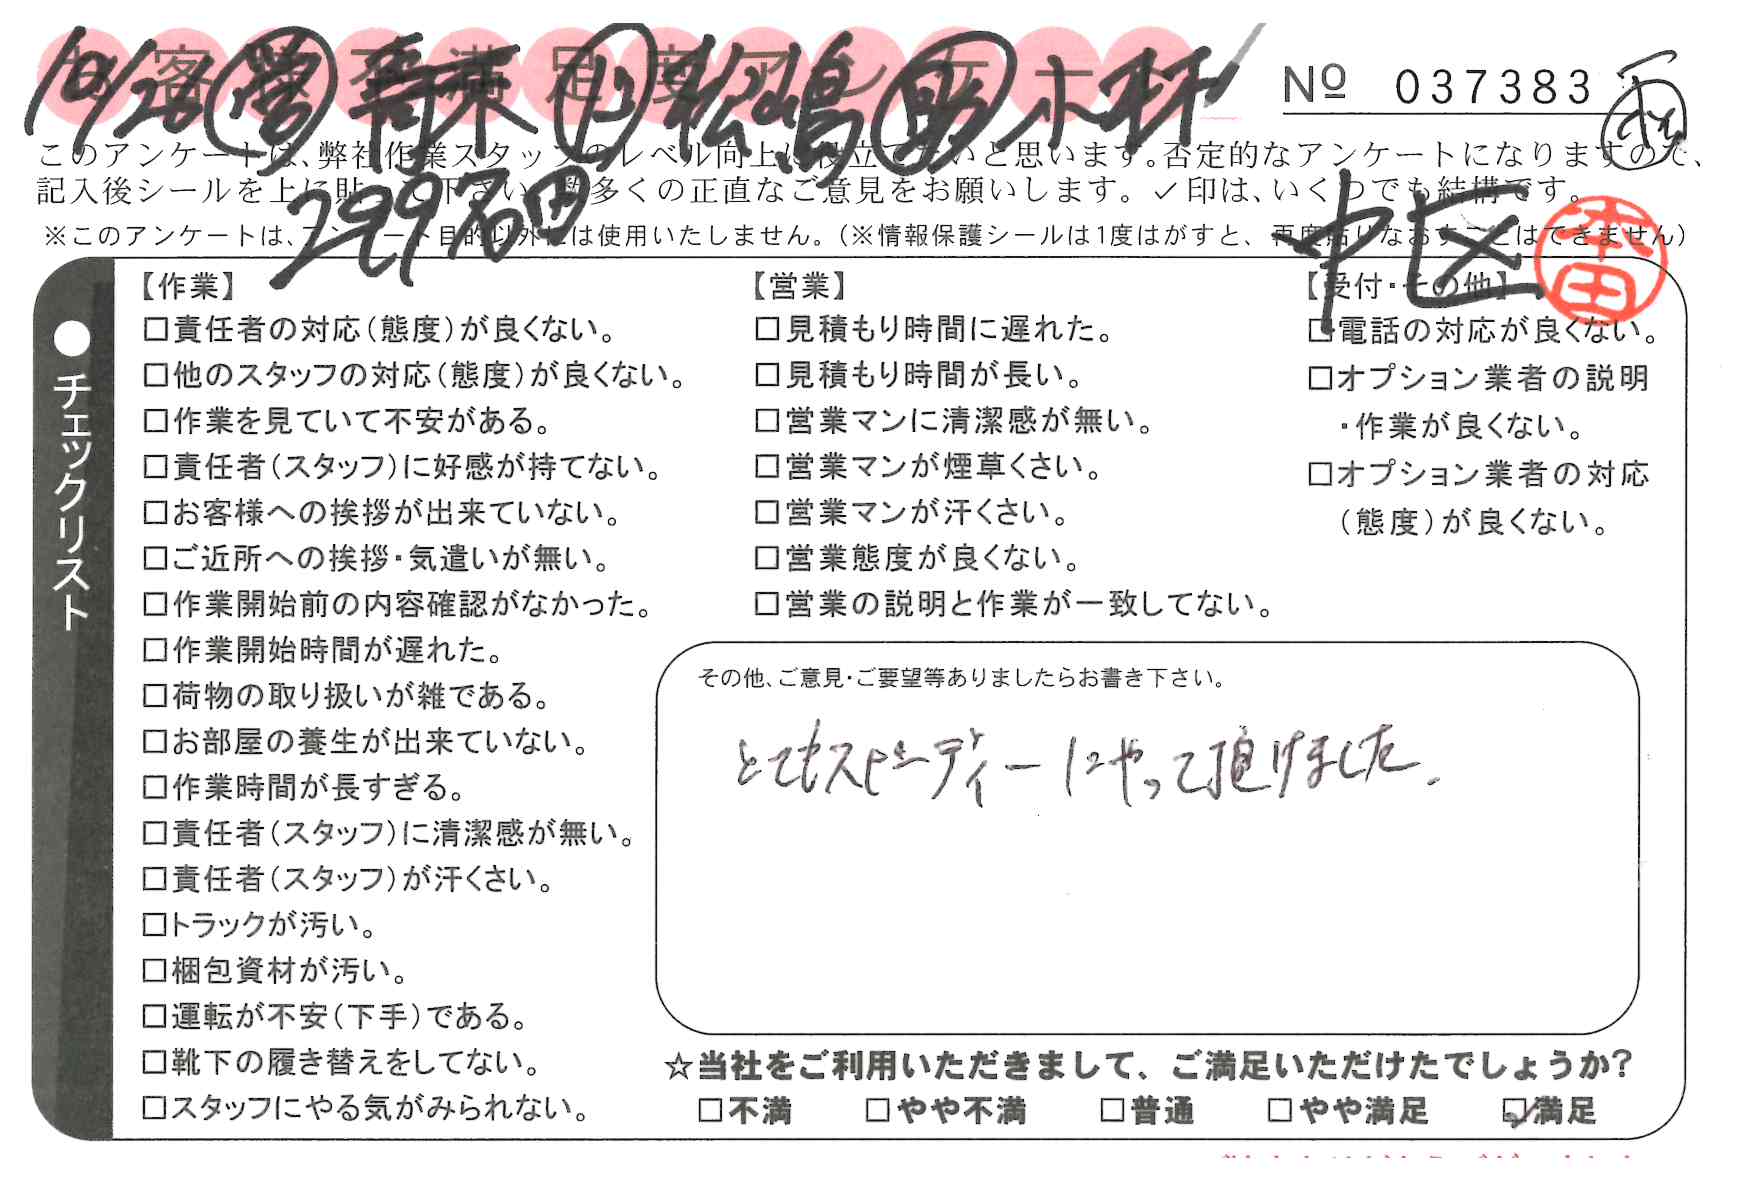 お客様不満足度アンケート
10/26 営 青木 リ 松嶋 助 木村
№ 037383
このアンケートは、弊社作業スタッフのレベル向上に役立てたいと思います。否定的なアンケートになりますので、
記入後シールを上に貼って下さい。数多くの正直なご意見をお願いします。✓印は、いくつでも結構です。
299万円
中区
※このアンケートは、アンケート目的以外には使用いたしません。（※情報保護シールは1度はがすと、再度貼りなおすことはできません）
本田
●チェックリスト
【作業】
□責任者の対応（態度）が良くない。
□他のスタッフの対応（態度）が良くない。
□作業を見ていて不安がある。
□責任者（スタッフ）に好感が持てない。
□お客様への挨拶が出来ていない。
□ご近所への挨拶・気遣いが無い。
□作業開始前の内容確認がなかった。
□作業開始時間が遅れた。
□荷物の取り扱いが雑である。
□お部屋の養生が出来ていない。
□作業時間が長すぎる。
□責任者（スタッフ）に清潔感が無い。
□責任者（スタッフ）が汗くさい。
□トラックが汚い。
□梱包資材が汚い。
□運転が不安（下手）である。
□靴下の履き替えをしてない。
□スタッフにやる気がみられない。
【営業】
□見積もり時間に遅れた。
□見積もり時間が長い。
□営業マンに清潔感が無い。
□営業マンが煙草くさい。
□営業マンが汗くさい。
□営業態度が良くない。
□営業の説明と作業が一致してない。
【受付・その他】
□電話の対応が良くない。
□オプション業者の説明
・作業が良くない。
□オプション業者の対応
（態度）が良くない。
その他、ご意見・ご要望等ありましたらお書き下さい。
とてもスピーディーにやって頂けました。
☆当社をご利用いただきまして、ご満足いただけたでしょうか？
□不満 □やや不満 □普通 □やや満足 ☑満足